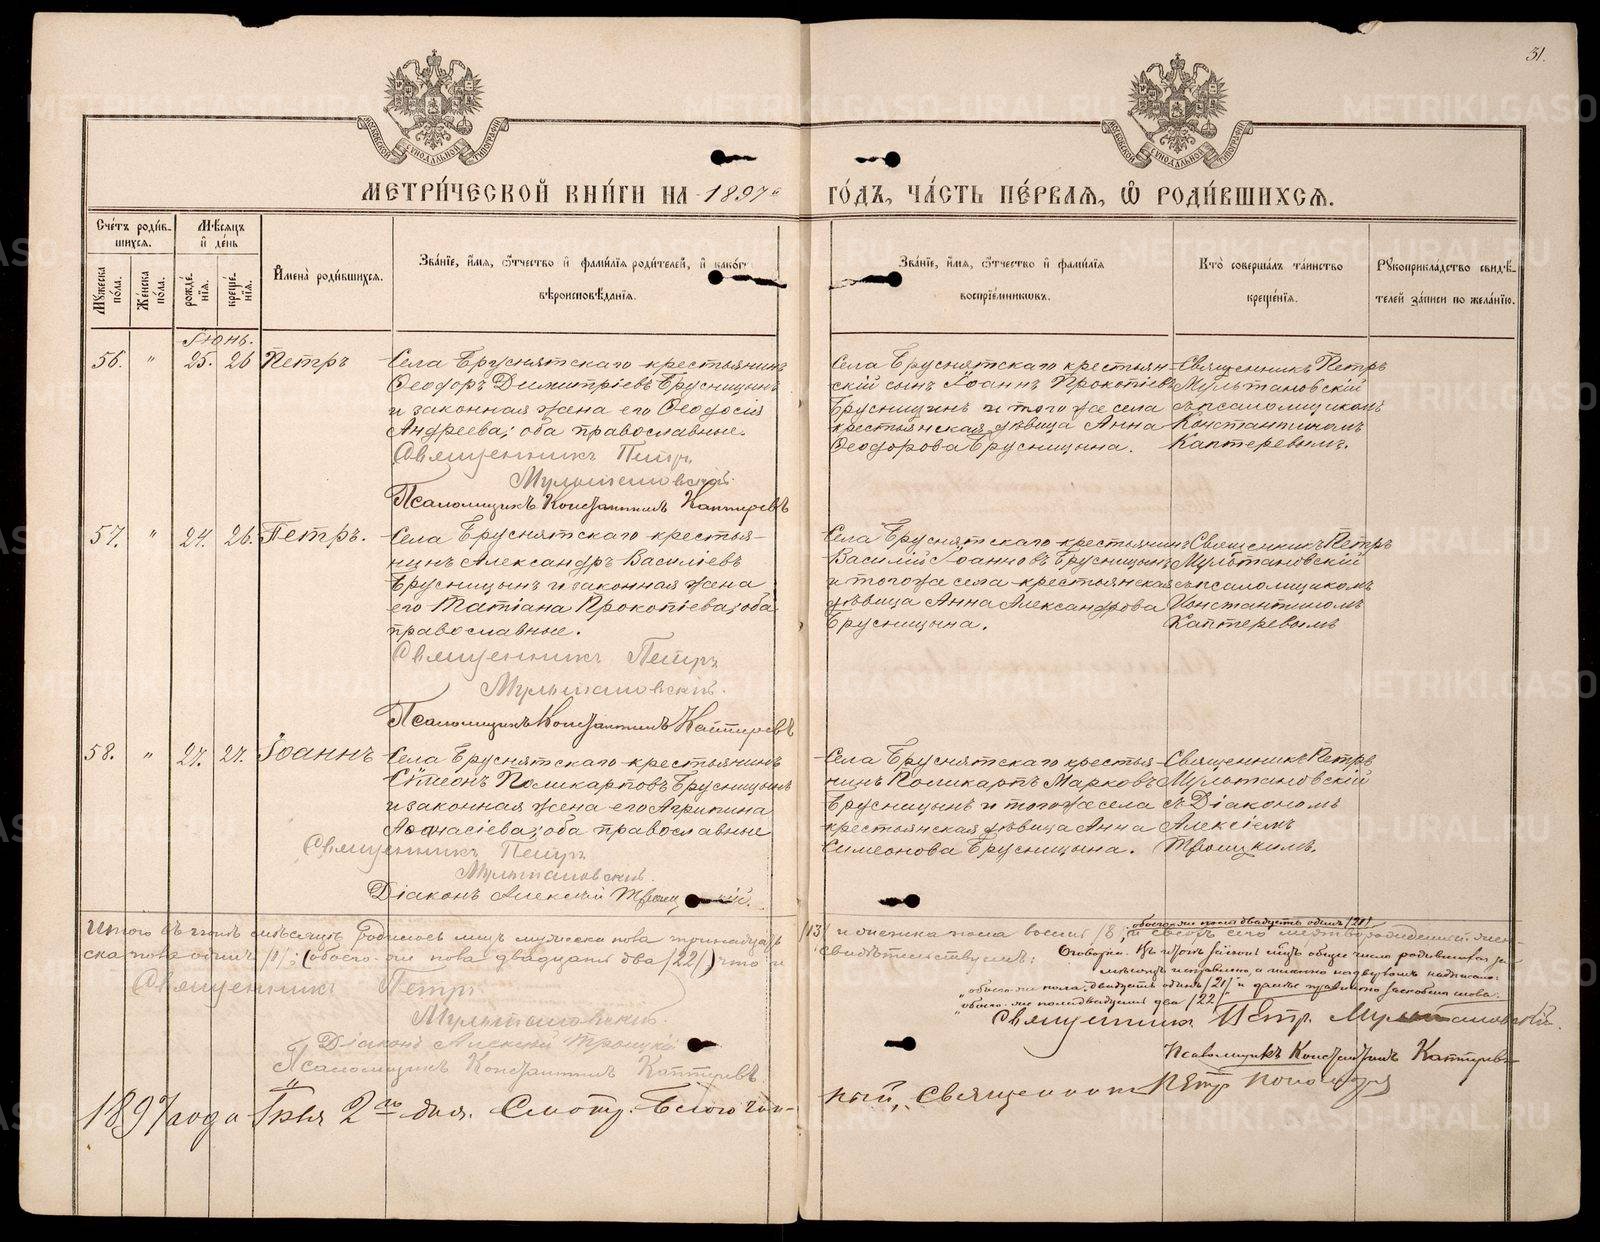 31.
МЕТРИ́ЧЕСКОЙ КНИ́ГИ НА 1897 ГО́ДЪ, ЧА́СТЬ ПЕ́РВАЯ, Ѿ РОДИ́ВШИХСѦ.
Сче́тъ роди́в-
шихся.
Мѣ́сяцъ
и҆ де́нь
Мꙋ́жеска по́ла.
Же́нска по́ла.
рожде́нїя.
креще́нїя.
И҆мена̀ роди́вшихся.
Зва́нїе, и҆́мя, ѻ҆́тчество и҆ фами́лїя роди́телей, и҆ како́гѡ
вѣроисповѣ́данїя.
Зва́нїе, и҆́мя, ѻ҆́тчество и҆ фами́лїя
воспрїе́мникѡвъ.
Кто̀ соверша́лъ та́инство
креще́нїя.
Рꙋкоприкла́дство свидѣ́-
телей за́писи по жела́нїю.
Іюнь.
56. " 25. 26 Петръ
Села Бруснятскаго крестьянинъ
Ѳеодоръ Димитріевъ Брусницынъ
и законная жена его Ѳеодосія
Андреева; оба православные.
Священникъ Петръ
Мультановскій.
Псаломщикъ Константинъ Каптеревъ
Села Бруснятскаго крестьян
скій сынъ Іоаннъ Прокопіевъ
Брусницынъ и того же села
крестьянская дѣвица Анна
Ѳеодорова Брусницына.
Священникъ Петръ
Мультановскій
съ псаломщикомъ
Константиномъ
Каптеревымъ.
57. " 24. 26. Петръ.
Села Бруснятскаго крестья-
нинъ Александръ Василіевъ
Брусницынъ и законная жена
его Татіана Прокопіева; оба
православные.
Священникъ Петръ
Мультановскій.
Псаломщикъ Константинъ Каптеревъ
Села Бруснятскаго крестьянинъ
Василій Іоанновъ Брусницынъ
и того же села крестьянская
дѣвица Анна Александрова
Брусницына.
Священникъ Петръ
Мультановскій
съ псаломщикомъ
Константиномъ
Каптеревымъ
58. " 27. 27. Іоаннъ
Села Бруснятскаго крестьянинъ
Симеонъ Поликарповъ Брусницынъ
и законная жена его Агрипина
Аѳанасіева; оба православные
Священникъ Петръ
Мультановскій.
Діаконъ Алексій Троицкій.
Села Бруснятскаго крестья-
нинъ Поликарпъ Марковъ
Брусницынъ и того же села
крестьянская дѣвица Анна
Симеонова Брусницына.
Священникъ Петръ
Мультановскій
съ Діакономъ
Алексіемъ
Троицкимъ.
Итого въ іюнѣ мѣсяцѣ родилось лицъ мужеска пола тринадцать /13/ и женска пола восемь /8/,
обоего-же пола двадцать одинъ /21/
ска пола одинъ /1/; (обоего-же пола двадцать два /22/) что и свидѣтельствуемъ:
Священникъ Петръ
Мультановскій.
Діаконъ Алексій Троицкій
Псаломщикъ Константинъ Каптеревъ
"обоего-же пола двадцать одинъ /21/" и далѣе
"обоего-же пола двадцать два /22/"
Священникъ Петръ Мультановскій.
Псаломщикъ Константинъ Каптеревъ
1897 года Іюля 2 го дня. Смотр. Благочин-
ный, Священникъ Петръ